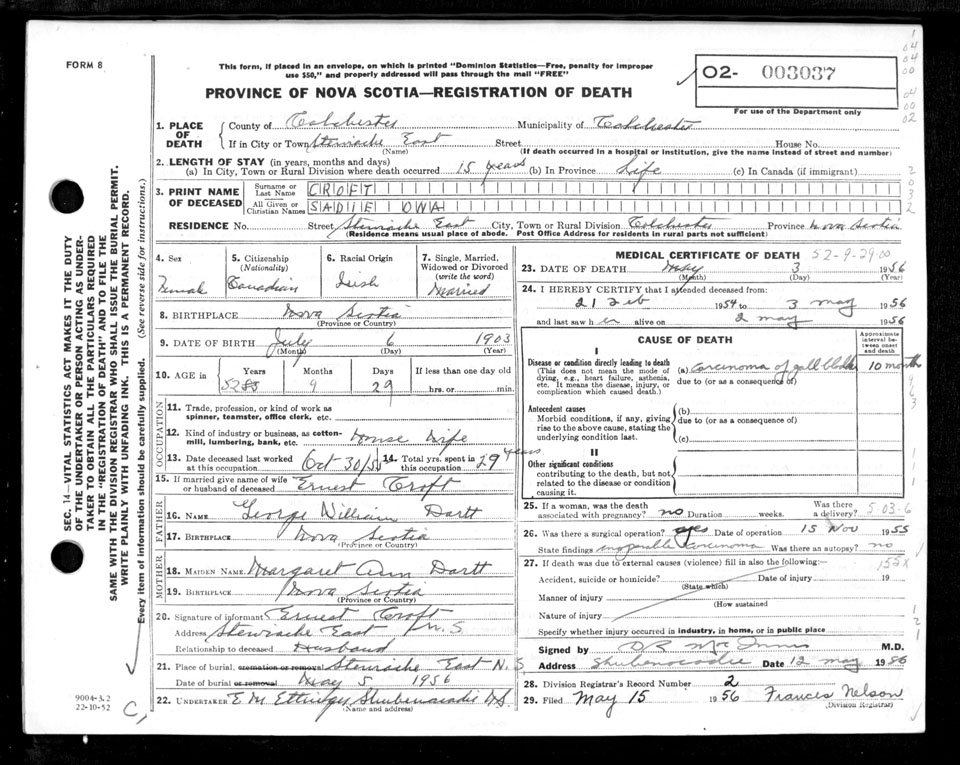 FORM 8
This form, if placed in an envelope, on which is printed "Dominion Statistics—Free, penalty for improper
use $50," and properly addressed will pass through the mail "FREE"
PROVINCE OF NOVA SCOTIA—REGISTRATION OF DEATH
02- 003037
For use of the Department only
1. PLACE OF DEATH
County of Colchester Municipality of Colchester
If in City or Town Stewiacke East Street House No.
(Name) (If death occurred in a hospital or institution, give the name instead of street and number)
2. LENGTH OF STAY (in years, months and days)
(a) In City, Town or Rural Division where death occurred 15 years (b) In Province Life (c) In Canada (if immigrant)
3. PRINT NAME OF DECEASED
Surname or Last Name CROFT
All Given or Christian Names SADIE ONA
RESIDENCE No. Street Stewiacke East City, Town or Rural Division Colchester Province Nova Scotia
(Residence means usual place of abode. Post Office Address for residents in rural parts not sufficient)
4. Sex
Female
5. Citizenship
(Nationality)
Canadian
6. Racial Origin
Irish
7. Single, Married,
Widowed or Divorced
(write the word)
Married
8. BIRTHPLACE Nova Scotia
(Province or Country)
9. DATE OF BIRTH July 6 1903
(Month) (Day) (Year)
10. AGE in Years Months Days If less than one day old
52 9 29 hrs. or min.
OCCUPATION
11. Trade, profession or kind of work as
spinner, teamster, office clerk, etc.
12. Kind of industry or business, as cotton-
mill, lumbering, bank, etc. House Wife
13. Date deceased last worked
at this occupation Oct 30/55
14. Total yrs. spent in
this occupation 29 years
15. If married give name of wife
or husband of deceased Ernest Croft
FATHER
16. NAME George William Dartt
17. BIRTHPLACE Nova Scotia
(Province or Country)
MOTHER
18. MAIDEN NAME Margaret Ann Dartt
19. BIRTHPLACE Nova Scotia
(Province or Country)
20. Signature of informant Ernest Croft
Address Stewiacke East N.S
Relationship to deceased Husband
21. Place of burial, cremation or removal Stewiacke East N.S
Date of burial or removal May 5 1956
22. UNDERTAKER E M Ettinger Shubenacadie N S
(Name and address)
MEDICAL CERTIFICATE OF DEATH
52-9-29-00
23. DATE OF DEATH May 3 1956
(Month) (Day) (Year)
24. I HEREBY CERTIFY that I attended deceased from:
21 Feb 1954 to 3 May 1956
and last saw her alive on 2 May 1956
CAUSE OF DEATH
Approximate
interval be-
tween onset
and death
I
Disease or condition directly leading to death
(This does not mean the mode of
dying, e.g., heart failure, asthenia,
etc. It means the disease, injury, or
complication which caused death.)
(a) Carcinoma of gall bladder 10 month
due to (or as a consequence of)
Antecedent causes
Morbid conditions, if any, giving
rise to the above cause, stating the
underlying condition last.
(b)
due to (or as a consequence of)
(c)
II
Other significant conditions
contributing to the death, but not
related to the disease or condition
causing it.
25. If a woman, was the death
associated with pregnancy? no Duration weeks. Was there
a delivery?
5-03-6
26. Was there a surgical operation? yes Date of operation 15 Nov 1955
State findings inoperable carcinoma Was there an autopsy? no
27. If death was due to external causes (violence) fill in also the following:—
155X
Accident, suicide or homicide? Date of injury 19
(State which)
Manner of injury
(How sustained
Nature of injury
Specify whether injury occurred in industry, in home, or in public place
Signed by D R McInnis M.D.
Address Shubenacadie Date 12 May 1956
28. Division Registrar's Record Number 2
29. Filed May 15 1956 Frances Nelson
(Division Registrar)
SEC. 14—VITAL STATISTICS ACT MAKES IT THE DUTY
OF THE UNDERTAKER OR PERSON ACTING AS UNDER-
TAKER TO OBTAIN ALL THE PARTICULARS REQUIRED
IN THE "REGISTRATION OF DEATH" AND TO FILE THE
SAME WITH THE DIVISION REGISTRAR WHO SHALL ISSUE THE BURIAL PERMIT.
WRITE PLAINLY WITH UNFADING INK. THIS IS A PERMANENT RECORD.
Every item of information should be carefully supplied. (See reverse side for instructions.)
9004-3.2
22-10-52
C,